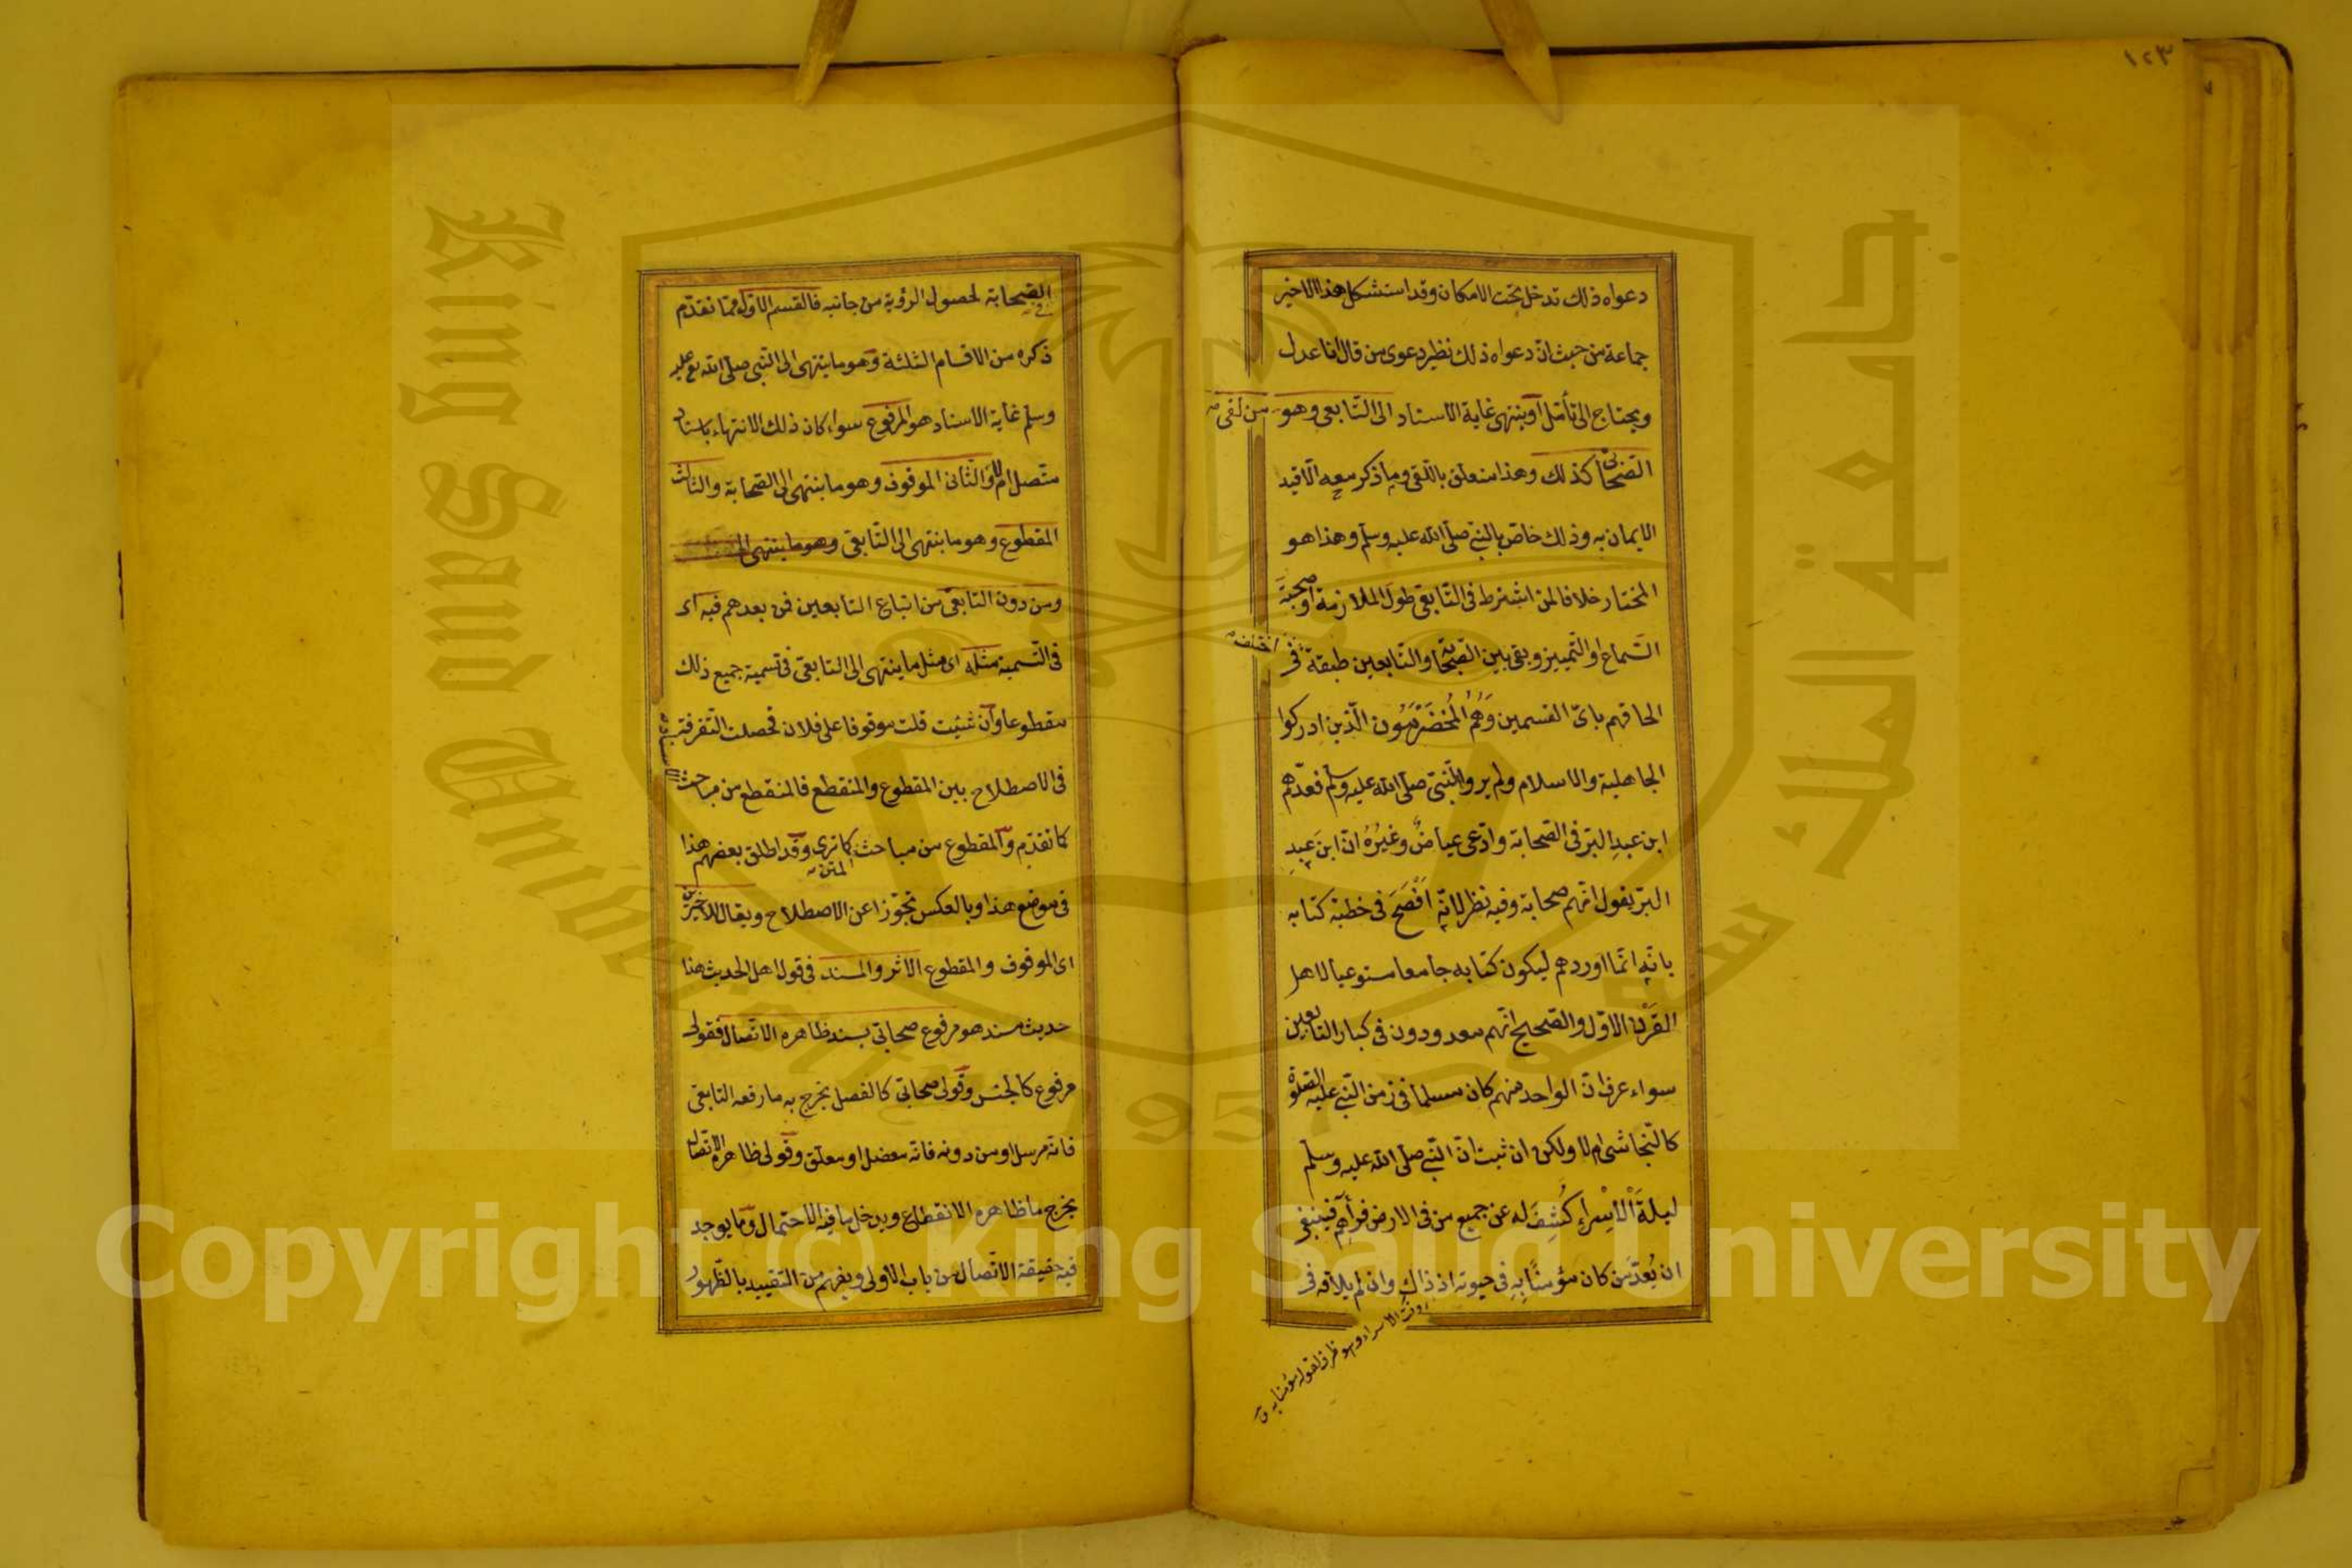 ١٢٣
دعواه ذلك تدخل تحت الامكان وقد استشكل هذا الاخير
جماعة من حيث ان دعواه ذلك نظير دعوى من قال انا عدل
ويحتاج الى تأمل او ينتهى غاية الاسناد الى التابعى وهو من لقى
الصحابى كذلك وهذا متعلق باللقى وما ذكر معه الا قيد
الايمان به وذلك خاص بالنبى صلى الله عليه وسلم وهذا هو
المختار خلافا لمن اشترط فى التابعى طول الملازمة او صحبة
السماع او التمييز وبقى بين الصحابة والتابعين طبقة اختلف فى
الحاقهم باىّ القسمين وَهُمُ الْمُخَضْرَمُون الّذين ادركوا
الجاهلية والاسلام ولم يروا النّبىّ صلى الله عليه وسلم فعدّهم
ابن عبدِ البَرّ فى الصحابة وادّعى عياضٌ وغيُرُه انّ ابنَ عبدِ
البَرّ يقول انّهم صحابة وفيه نظر لانّه اَفْصَحَ فى خطبة كتابه
بانّه انّما اوردهم ليكون كتابه جامعا مستوعبا لاهل
القَرْن الاوّل والصحيح انّهم معدودون فى كبار التابعين
سواء عرف انّ الواحد منهم كان مسلما فى زمن النّبى عليه الصلوة
كالنّجاشى ام لا ولكن ان ثبت انّ النّبى صلى الله عليه وسلم
ليلةَ الْاِسْراءِ كُشِفَ له عن جميع من فى الارض فرأهم فينبغى
ان يُعَدَّ مَن كان مؤمنًا بِهِ فى حيوته اذ ذاك وان لم يلاقه فى
وقت الاسراء وهو ظرف لقوله مؤمنا به
الصحابة لحصول الرؤية من جانبه فالقسم الاوّل ممّا تقدّم
ذكره من الاقسام الثلثة وهو ما ينتهى الى النّبى صلى الله تع عليه
وسلم غاية الاسناد هو المرفوع سواء كان ذلك الانتهاء باسناد
متّصل ام لا والثّانى الموقوف وهو ما ينتهى الى الصحابة والثالث
المقطوع وهو ما ينتهى الى التّابعى وهو ما ينتهى الى
ومن دون التابعىّ من اتباع التابعين فمن بعدهم فيه اى
فى التّسمية مثله اى مثل ما ينتهى الى التابعىّ فى تسمية جميع ذلك
مقطوعا وان شئت قلت موقوفا على فلان فحصلت التّفرقة
فى الاصطلاح بين المقطوع والمنقطع فالمنقطع من مباحث الاسناد
كما تقدّم والمقطوع من مباحث المتن كما ترى وقد اطلق بعضهم هذا
فى موضع هذا وبالعكس تجوّزا عن الاصطلاح ويقال للاخيرين
اى الموقوف والمقطوع الاثر والمسند فى قول اهل الحديث هذا
حديث مسند هو مرفوع صحابى بسند ظاهره الاتّصال فقولى
مرفوع كالجنس وقولى صحابى كالفصل يخرج به ما رفعه التابعى
فانّه مرسل او من دونه فانّه معضل او معلّق وقولى ظاهره الاتّصال
يخرج ما ظاهره الانقطاع ويدخل ما فيه الاحتمال وما يوجد
فيه حقيقة الاتّصال من باب الاولى ويفهم من التقييد بالظّهور
Copyright © King Saud University
King Saud University
جامعة الملك سعود
1957